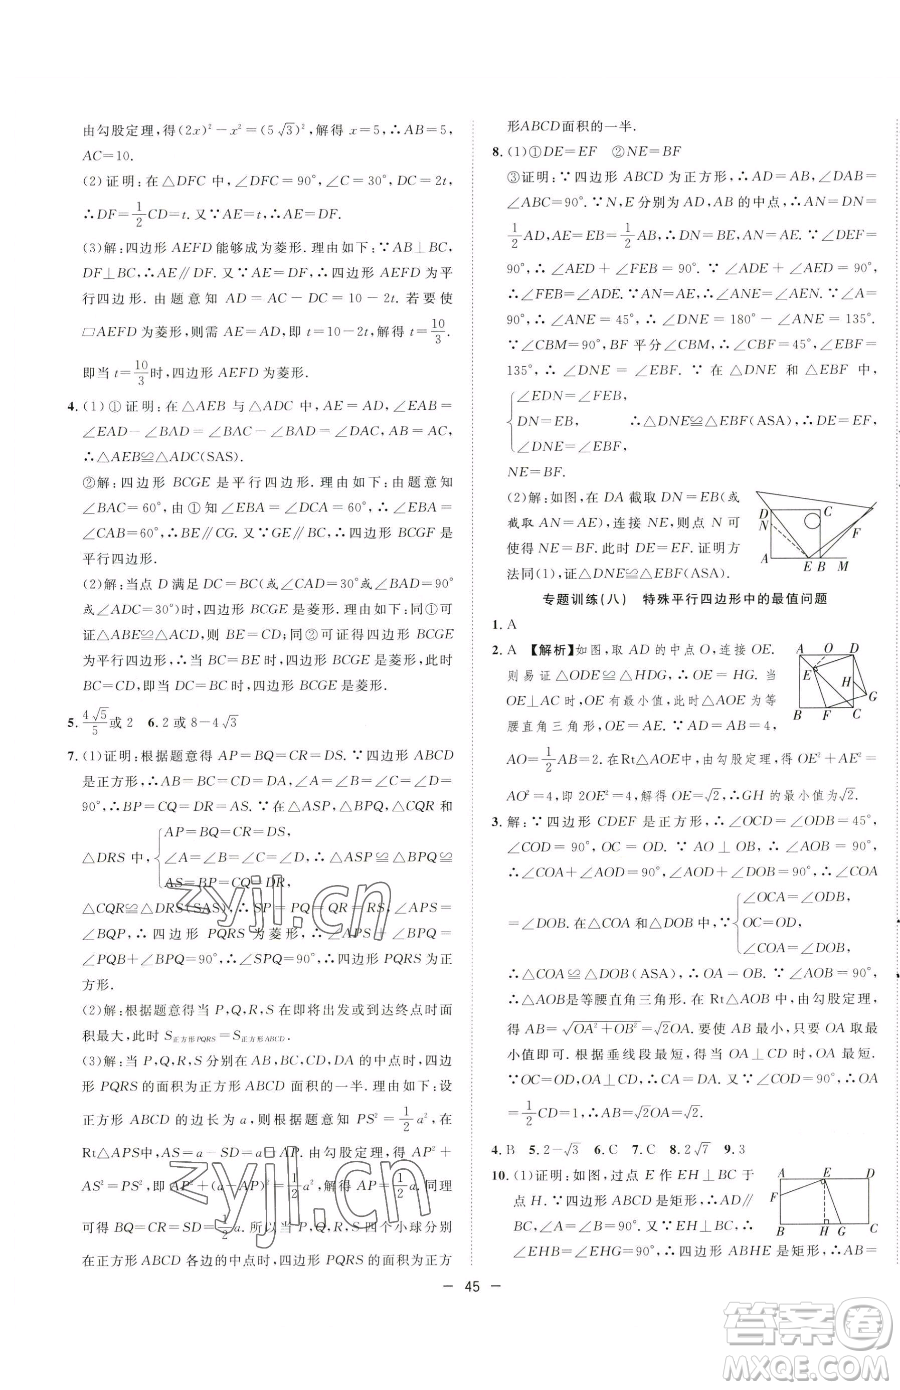 由勾股定理,得(2x)²-x²=(5√3)²,解得 x=5,∴AB=
AC=10.
(2)证明:在△DFC 中,∠DFC=90°,∠C=30°,DC=2t,
∴DF=1/2CD=t.又∵AE=t,∴AE=DF.
(3)解:四边形 AEFD 能够成为菱形.理由如下:∵AB⊥BC,
DF⊥BC,∴AE∥DF.又∵AE=DF,∴四边形 AEFD 为平
行四边形.由题意知 AD=AC-DC=10-2t.若要使
□AEFD 为菱形,则需 AE=AD,即 t=10-2t,解得 t=10/3.
即当 t=10/3时,四边形 AEFD 为菱形.
4.(1)①证明:在△AEB 与△ADC 中,AE=AD,∠EAB=
∠EAD-∠BAD=∠BAC-∠BAD=∠DAC,AB=AC,
∴△AEB≌△ADC(SAS).
②解:四边形 BCGE 是平行四边形.理由如下:由题意知
∠BAC=60°,由①知∠EBA=∠DCA=60°,∴∠EBA=
∠CAB=60°,∴EB∥GC.又∵GE∥BC,∴四边形 BCGF 是
平行四边形.
(2)解:当点 D 满足 DC=BC(或∠CAD=30°或∠BAD=
90°或∠ADC=30°)时,四边形 BCGE 是菱形.理由:同①可
证△ABE≌△ACD,∴BE=CD.同②可证四边形 BCGE 为
平行四边形,∴当 CD=CB 时,四边形 BCGE 是菱形,此时
BC=BE,∴四边形 BCGE 是菱形.
5.4√5/5或 2 6.2 或 8-4√3
7.(1)证明:根据题意得 AP=BQ=CR=DS.∵四边形 ABCD
是正方形,∴AB=BC=CD=DA,∠A=∠B=∠C=∠D=
90°,∴BP=CQ=DR=AS.∵在△ASP,△BPQ,△CQR 和
△DRS 中,{AP=BQ=CR=DS, ∠A=∠B=∠C=∠D, AS=BP=CQ=DR,∴△ASP≌△BPQ≌
△CQR≌△DRS(SAS),∴SP=PQ=QR=RS,∠APS=
∠BQP,∴四边形 PQRS 为菱形.∵∠APS+∠BPQ=
∠BQP+∠BPQ=90°,∴∠QPS=90°,∴四边形 PQRS 为正方
形.
(2)解:根据题意得当 P,Q,R,S 在即将出发或到达终点时面
积最大,此时 S正方形PQRS=S正方形ABCD.
(3)解:当 P,Q,R,S 分别在 AB,BC,CD,DA 的中点时,四边
形 PQRS 的面积为正方形 ABCD 面积的一半.理由如下:设
正方形 ABCD 的边长为 a,则根据题意知 PS²=1/2a²,在
Rt△APS中,AS=a-SD=a-AP,由勾股定理,得 AP²+
AS²=PS²,即 AP²+(a-AP)²=1/2a²,解得 AP=1/2a.同理
可得 BQ=CR=SD=1/2a.所以当 PQRS 四个小球分别
在正方形 ABCD 各边的中点时,四边形 PQRS 的面积为正方
形ABCD面积的一半.
8.(1)①DE=EF ②NE=BF
③证明:∵四边形 ABCD 为正方形,∴AD=AB,∠DAB=
∠ABC=90°.∵N,E 分别为 AD,AB 的中点,∴AN=DN=
1/2AD,AE=EB=1/2AB,∴DN=BE,AN=AE.∵∠DEF=
90°,∴∠AED+∠FEB=90°.又∵∠ADE+∠AED=90°,
∴∠FEB=∠ADE.∵AN=AE,∴∠ANE=∠AEN.∵∠A=
90°,∴∠ANE=45°,∴∠DNE=180°-∠ANE=135°.
∵∠CBM=90°,BF 平分∠CBM,∴∠CBF=45°,∠EBF=
135°,∴∠DNE=∠EBF.∵在△DNE 和△EBF 中,
{∠EDN=∠FEB, DN=EB, ∠DNE=∠EBF, ∴△DNE≌△EBF(ASA),∴DE=EF,
NE=BF.
(2)解:如图,在 DA 截取 DN=EB(或
截取 AN=AE),连接 NE,则点 N 可
使得 NE=BF.此时 DE=EF.证明方
法同(1),证△DNE≌△EBF(ASA).
D C
N F
A E B M
专题训练(八) 特殊平行四边形中的最值问题
1.A
2.A 【解析】如图,取 AD 的中点 O,连接 OE.
则易证△ODE≌△HDG,∴OE=HG.当
OE⊥AC 时,OE 有最小值,此时△AOE 为等
腰直角三角形,OE=AE.∵AD=AB=4,∴
AO=1/2AB=2.在Rt△AOE中,由勾股定理,得OE²+AE²=
AO²=4,即 2OE²=4,解得OE=√2,∴GH的最小值为√2.
A O D
E
G
B F C
3.解:∵四边形 CDEF 是正方形,∴∠OCD=∠ODB=45°,
∠COD=90°,OC=OD.∵AO⊥OB,∴∠AOB=90°,
∴∠COA+∠AOD=90°,∠AOD+∠DOB=90°,∴∠COA
=∠DOB.∵在△COA 和△DOB 中,∵{∠OCA=∠ODB, OC=OD, ∠COA=∠DOB,
∴△COA≌△DOB(ASA),∴OA=OB.∵∠AOB=90°,
∴△AOB是等腰直角三角形.在 Rt△AOB 中,由勾股定理,
得 AB=√OA²+OB²=√2OA.要使 AB 最小,只要 OA 取最
小值即可.根据垂线段最短,得当 OA⊥CD 时,OA 最短.
∵OA⊥CD,OC=OD,∴CA=DA.又∵∠COD=90°,∴OA=
1/2CD=1,∴AB=√2OA=√2.
4.B 5.2-√3 6.C 7.C 8.2√7 9.3
10.(1)证明:如图,过点 E 作 EH⊥BC 于
点 H.∵四边形 ABCD 是矩形,∴AD∥
BC,∠A=∠B=90°.∵EH⊥BC,
∴∠EHB=∠EHG=90°,∴四边形 ABHE 是矩形,∴AB=
A E D
F
B H G C
45
zyjl.cn
zyjl.cn
答案圈
MXQE.COM